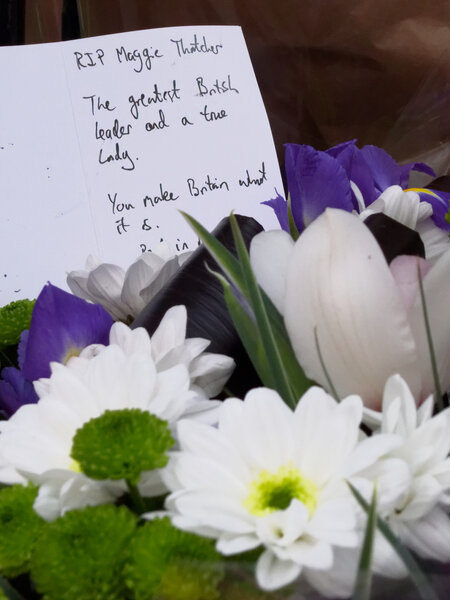 RIP Maggie Thatcher
The greatest British
leader and a true
Lady.
You make Britain what
it is.